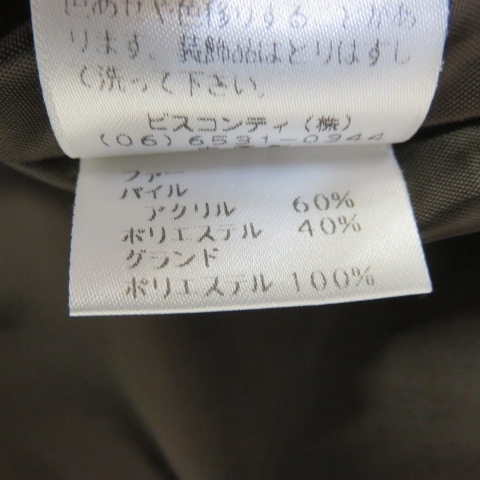 色あせや色移りすることがあ
ります、装飾品はとりはずし
て洗って下さい。
ビスコンティ(株)
(06)6531-0344
ファー
パイル
アクリル 60%
ポリエステル 40%
グランド
ポリエステル 100%